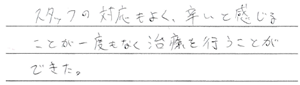 スタッフの対応もよく、辛いと感じる
ことが一度もなく治療を行うことが
できた。